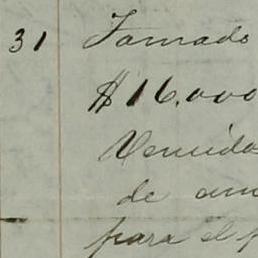 31 Tomado
$16.000
Vencido
de am
para el p